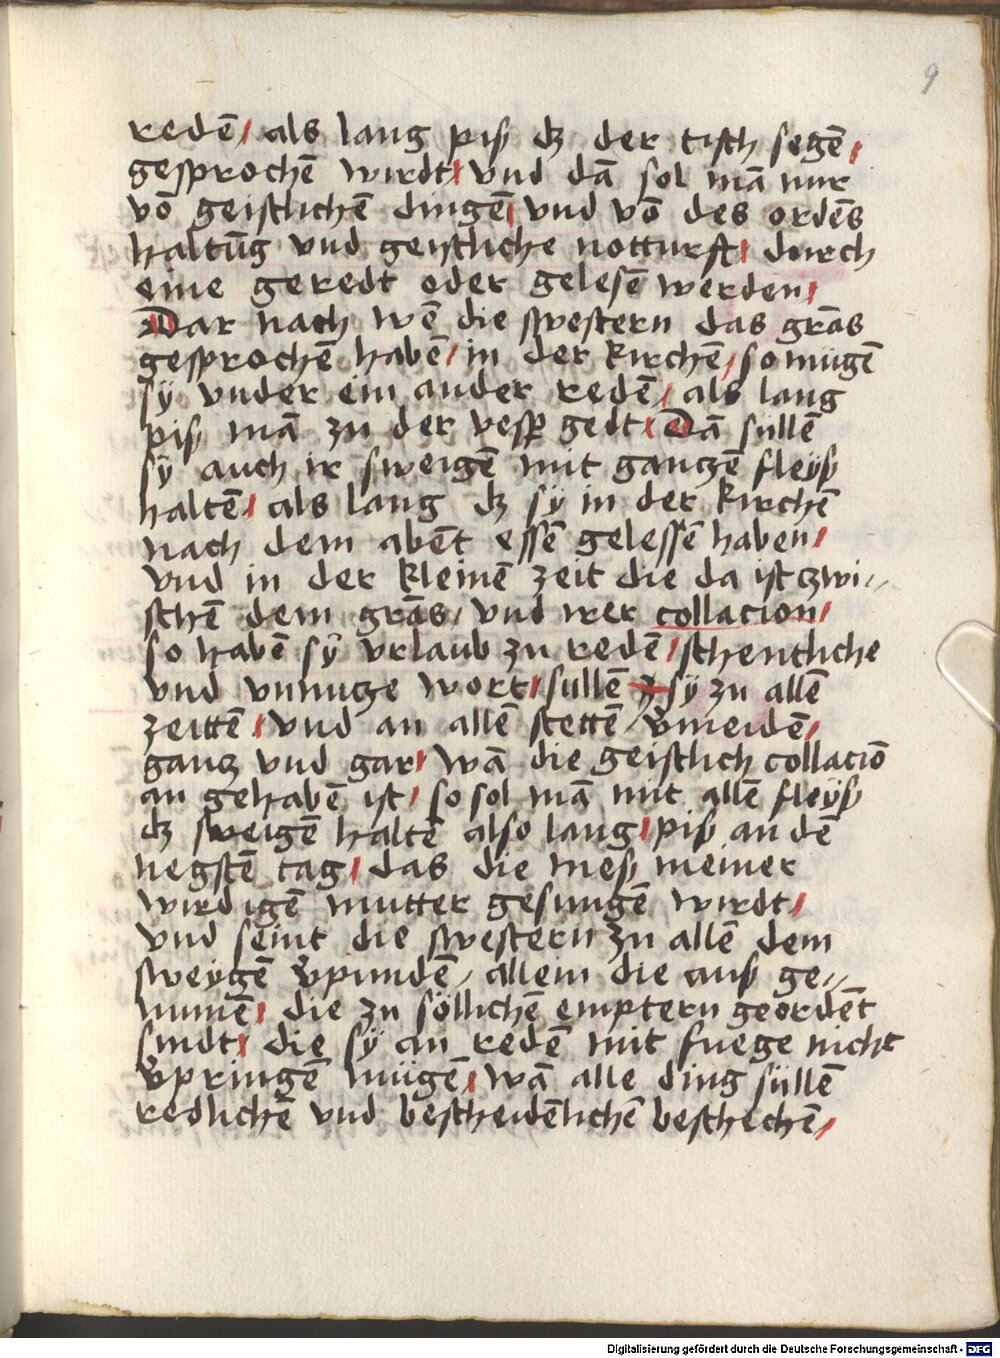 9
redē/ als lang piß dz der tisch segē/
gesprochē wirdt/ vnd dā sol mā nur
vō geistlichē dingē/ vnd vō des ordēs
haltūg vnd geistliche notturft/ durch
eine geredt oder gelesē werden/
Dar nach wē die swestern das grās
gesprochē habē/ in der kirchē/ so mügē
sÿ vnder ein ander redē/ als lang
piß mā zu der vesp gedt/ Dā süllē
sÿ auch ir sweigē mit gantzē fleÿß
haltē/ als lang dz sÿ in der kirchē
nach dem abēt essē gelessē haben/
vnd in der kleinē zeit die da ist zwi//
schē dem grās/ vnd irer collacion/
so habē sÿ vrlaub zu redē/ schentliche
vnd vnnutze wort/ süllē sÿ zu allē
zeittē/ vnd an allē stettē/ v̄meidē/
gantz vnd gar/ wā die geistlich collaciō
an gehabē ist/ so sol mā mit allē fleÿß
dz sweigē haltē also lang/ piß an dē
negstē tag/ das die meß meiner
wirdigē mutter gesungē wirdt/
vnd seint die swestern zu allē dem
sweÿgē v̄pundē/ allein die auß ge//
numē/ die zu söllichē emptern geordēt
sindt/ die sÿ an redē mit fuege nicht
v̄pringē mügē/ wā alle ding süllē
redlichē vnd bescheidēlichē beschechē/
Digitalisierung gefördert durch die Deutsche Forschungsgemeinschaft - DFG